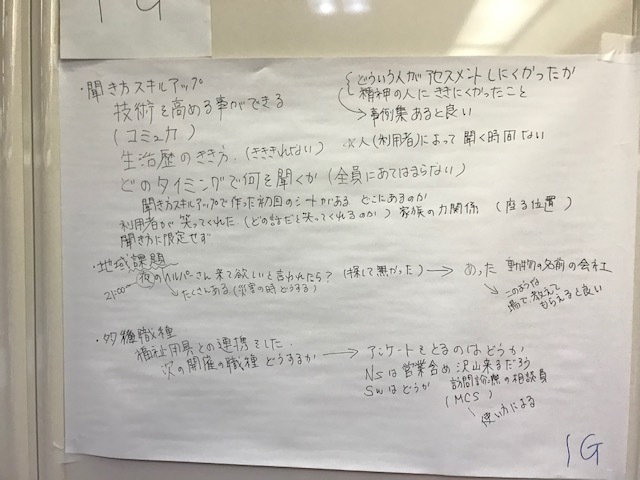 1G
・聞き方スキルアップ
技術を高める事ができる
(コミュ力)
生活歴のきき方.(ききれない)
※人(利用者)によって聞く時間ない
どのタイミングで何を聞くか(全員にあてはまらない)
聞き方スキルアップで作った初回のシートがある どこにあるのか
利用者が笑ってくれた(どの話だと笑ってくれるのか) 家族の力関係 (座る位置)
聞き方に限定せず
どういう人がアセスメントしにくかったか
精神の人にききにくかったこと
→事例集あると良い
・地域課題
21:00〜 夜のヘルパーさん来て欲しいと言われたら?(探して無かった) → あった 動物の名前の会社
たくさんある(災害の時どうする)
このような
場で教えて
もらえると良い
・多種職種
福祉用具との連携をした.
次の開催の職種どうするか → アンケートをとるのはどうか
Nsは営業含め沢山来るだろう
SWはどうか 訪問診療の相談員
(MCS)
使い方による
1G